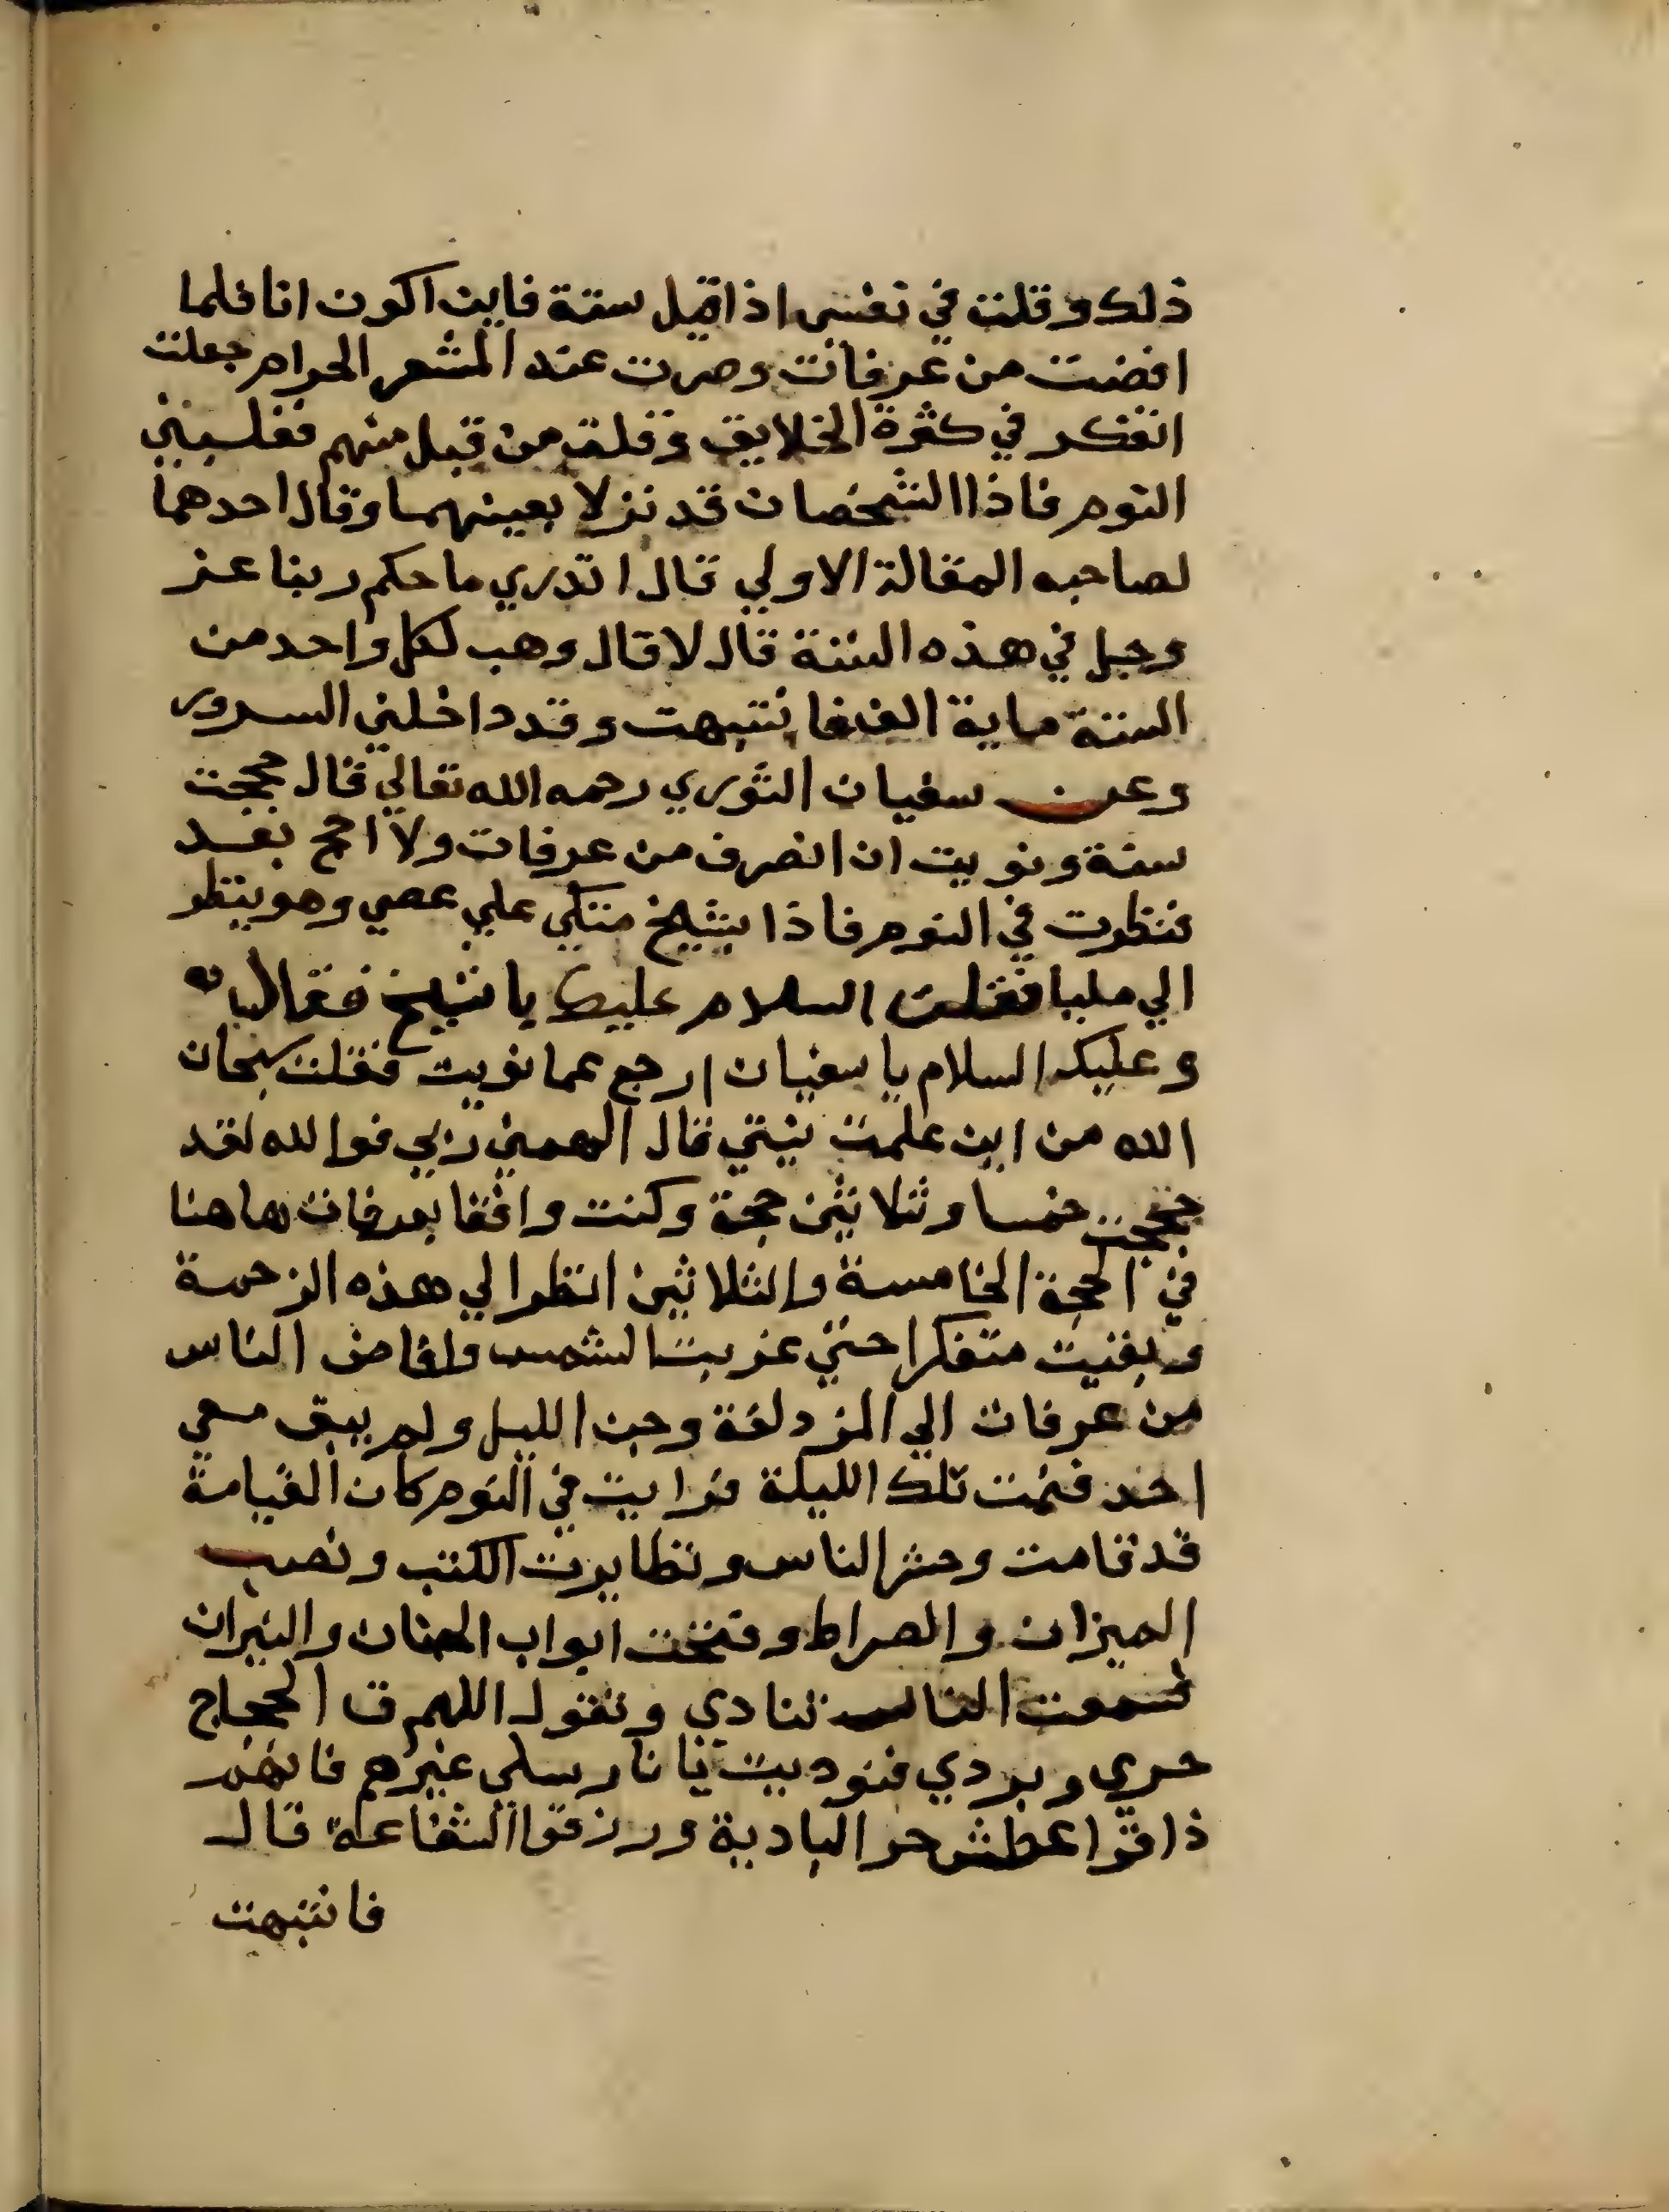 ذلك وقلت في نفسي اذا قبل ستة فاين اكون انا فلما
افضت من عرفات وصرت عند المشعر الحرام جعلت
اتفكر في كثرة الخلايق وقلة من قبل منهم فغلبني
النوم فاذا الشخصان قد نزلا بعينهما وقال احدهما
لصاحبه المقالة الاولي قال اتدري ما حكم ربنا عز
وجل في هذه السنة قال لا قال وهب لكل واحد من
الستة ماية الف فانتبهت وقد داخلني السرور
وعن سفيان الثوري رحمه الله تعالي قال حججت
سنة ونويت ان انصرف من عرفات ولا احج بعد
فنظرت في النوم فاذا بشيخ متكي علي عصي وهو ينظر
الي مليا فقلت السلام عليك يا شيخ فقال
وعليك السلام يا سفيان ارجع عما نويت فقلت سبحان
الله من اين علمت نيتي قال الهمني ربي فوالله لقد
حججت خمسا وثلاثين حجة وكنت واقفا بعرفات هاهنا
في الحجة الخامسة والثلاثين انظر الي هذه الزحمة
وبقيت متفكرا حتي غربت الشمس وافاض الناس
من عرفات الي المزدلفة وجن الليل ولم يبق معي
احد فنمت تلك الليلة فرايت في النوم كان القيامة
قد قامت وحشر الناس وتطايرت الكتب ونصب
الميزان والصراط وفتحت ابواب الجنان والنيران
فسمعت النار تنادي وتقول اللهم ق الحجاج
حري وبردي فنوديت يا نار سلي غيرهم فانهم
ذاقوا عطش حر البادية ورزقوا الشفاعة قال
فانتبهت